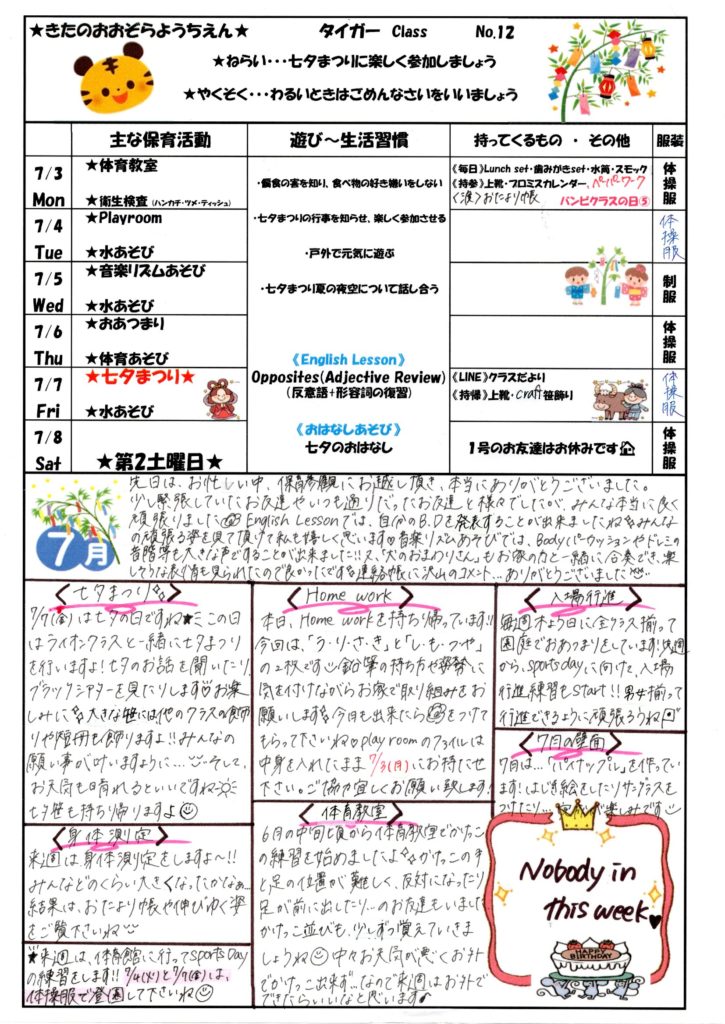 ★きたのおおぞらようちえん★ タイガー Class No.12
★ねらい・・・七夕まつりに楽しく参加しましょう
★やくそく・・・わるいときはごめんなさいをいいましょう
主な保育活動 遊び～生活習慣 持ってくるもの ・ その他 服装
7/3
Mon
★体育教室
★衛生検査(ハンカチ・ツメ・ティッシュ)
7/4
Tue
★Playroom
★水あそび
7/5
Wed
★音楽リズムあそび
★水あそび
7/6
Thu
★おあつまり
★体育あそび
7/7
Fri
★七夕まつり★
★水あそび
7/8
Sat
★第2土曜日★
・偏食の害を知り、食べ物の好き嫌いをしない
・七夕まつりの行事を知らせ、楽しく参加させる
・戸外で元気に遊ぶ
・七夕まつり夏の夜空について話し合う
《English Lesson》
Opposites(Adjective Review)
(反意語+形容詞の復習)
《おはなしあそび》
七夕のおはなし
《毎日》Lunch set・歯みがきset・水筒・スモック
《持参》上靴・プロミスカレンダー、ペーパーワーク
〈渡〉おたより帳 バンビクラスの日⑤
《LINE》クラスだより
《持帰》上靴・craft 笹飾り
1号のお友達はお休みです
体操服
体操服
制服
体操服
体操服
体操服
7月
先日は、お忙しい中、保育参観にお越し頂き、本当にありがとうございました。
少し緊張していたお友達やいつも通りだったお友達と様々でしたが、みんな本当に良く
頑張りました English Lessonでは、自分のB.Dを発表することが出来ましたね みんな
の頑張る姿を見て頂けて私も嬉しく思います 音楽リズムあそびでは、Bodyパーカッションやドレミの
音階等も大きな声ですることが出来ました!!又、「犬のおまわりさん」もお家の方と一緒に合奏でき、楽
しそうな表情も見られたので良かったです 連絡帳に沢山のコメント…ありがとうございました
〈七夕まつり〉
7/7(金)は七夕の日ですね★この日
はライオンクラスと一緒に七夕まつり
を行いますよ!七夕のお話を聞いたり、
ブラックシアターを見たりします お楽
しみに 大きな笹には他のクラスの飾
りや短冊も飾りますよ!!みんなの
願い事が叶いますように… そして、
お天気も晴れるといいですね
七夕笹も持ち帰りますよ
〈身体測定〉
来週は身体測定をしますよ～!!
みんなどのくらい大きくなったかなぁ…
結果は、おたより帳や伸びゆく姿
をご覧下さいね
★来週は、体育館に行ってsports Day
の練習をします!! 7/4(火)と7/7(金)は、
体操服で登園して下さいね
〈Home work〉
本日、Home workを持ち帰っています!!
今回は、「う・り・さ・き」と「し・も・つ・や」
の2枚です 鉛筆の持ち方や姿勢に
気を付けながらお家で取り組みをお
願いします 今月も出来たら をつけて
もらって下さいね playroomのファイルは
中身を入れたまま 7/3(月)にお持たせ
下さい。ご協力宜しくお願い致します!
〈体育教室〉
6月の中旬頃から体育教室でかけっこ
の練習を始めましたよ かけっこの手
と足の位置が難しく、反対になったり
足が前に出したり…のお友達もいました
かけっこ並びも、少しずつ覚えていきま
しょうね 中々お天気が悪くお外
でかけっこ出来ず…なので来週はお外で
できたらいいなと思います
〈入場行進〉
毎週木よう日に全クラス揃って
園庭でおあつまりをしています!!来週
から、sports dayに向けて、入場
行進練習もstart!!男女揃って
行進できるように頑張ろうね
〈7月の壁面〉
7月は…「パイナップル」を作っていま
す!はじき絵をしたりサングラスを
つけたり…
Nobody in
this week
HAPPY
BIRTHDAY